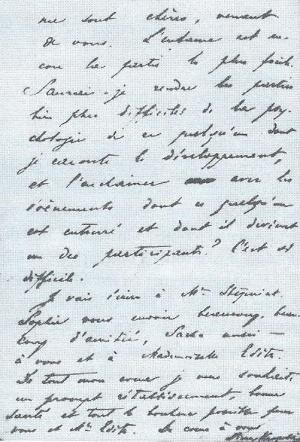 me sont chères, venant
de vous. L'entame est en-
core la partie la plus facile.
Saurai-je rendre les parties
bien plus difficiles de la psy-
chologie de ce quelqu'un dont
je raconte le développement,
et l'enchaîner avec les
évènements dont ce quelqu'un
est entouré et dont il devient
un des participants? C'est si
difficile.
Je vais écrire à Mr
Sophie vous envoie beaucoup, beau-
coup d'amitié, Sacha aussi —
à vous et à Mademoiselle Edith.
De tout mon cœur je vous souhaite
un prompt rétablissement, bonne
santé et tout le bonheur possible pour
vous et Mlle Edith. De cœur à vous